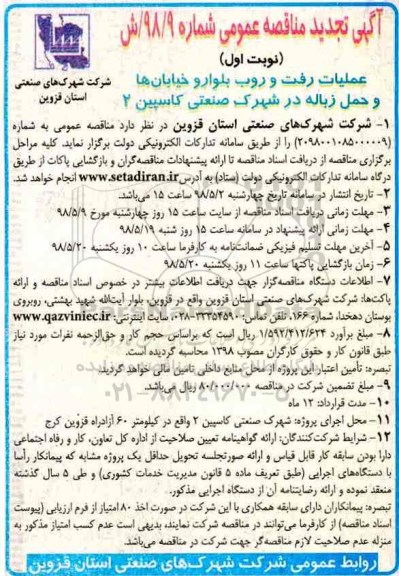 آگهی تجدید مناقصه عمومی شماره ۹۸/۹/ش
(نوبت اول)
شرکت شهرک‌های صنعتی
استان قزوین
عملیات رفت و روب بلوار و خیابان‌ها
و حمل زباله در شهرک صنعتی کاسپین ۲
۱- شرکت شهرک‌های صنعتی استان قزوین در نظر دارد مناقصه عمومی به شماره
(۲۰۹۸۰۰۱۰۸۵۰۰۰۰۰۹) را از طریق سامانه تدارکات الکترونیکی دولت برگزار نماید. کلیه مراحل
برگزاری مناقصه از دریافت اسناد مناقصه تا ارائه پیشنهادات مناقصه‌گران و بازگشایی پاکات از طریق
درگاه سامانه تدارکات الکترونیکی دولت (ستاد) به آدرس www.setadiran.ir انجام خواهد شد.
۲- تاریخ انتشار در سامانه تاریخ چهارشنبه ۹۸/۵/۲ ساعت ۱۵ می‌باشد.
۳- مهلت زمانی دریافت اسناد مناقصه از سایت ساعت ۱۵ روز چهارشنبه مورخ ۹۸/۵/۹
۴- مهلت زمانی ارائه پیشنهاد در سامانه ساعت ۱۵ روز شنبه ۹۸/۵/۱۹
۵- آخرین مهلت تسلیم فیزیکی ضمانت‌نامه به کارفرما ساعت ۱۰ روز یکشنبه ۹۸/۵/۲۰
۶- زمان بازگشایی پاکتها ساعت ۱۱ روز یکشنبه ۹۸/۵/۲۰
۷- اطلاعات دستگاه مناقصه‌گزار جهت دریافت اطلاعات بیشتر در خصوص اسناد مناقصه و ارائه
پاکت‌ها: شرکت شهرک‌های صنعتی استان قزوین واقع در قزوین، بلوار آیت‌الله شهید بهشتی، روبروی
بوستان دهخدا، شماره ۱۶۶، تلفن تماس: ۳۳۳۵۴۵۹۰-۰۲۸، سایت اینترنتی: www.qazviniec.ir
۸- مبلغ برآورد ۱/۵۹۲/۴۱۲/۶۲۴ ریال است که براساس حجم کار و حق‌الزحمه نفرات مورد نیاز
طبق قانون کار و حقوق کارگران مصوب ۱۳۹۸ محاسبه گردیده است.
تبصره: تأمین اعتبار این پروژه از محل منابع داخلی تامین مالی خواهد گردید.
۹- مبلغ تضمین شرکت در مناقصه ۸۰/۰۰۰/۰۰۰ ریال می‌باشد.
۰۲۱-۸۸۳۴۹۶۷۰-۵
۱۰- مدت قرارداد: ۱۲ ماه
۱۱- محل اجرای پروژه: شهرک صنعتی کاسپین ۲ واقع در کیلومتر ۶۰ آزادراه قزوین کرج
۱۲- شرایط شرکت‌کنندگان: ارائه گواهینامه تعیین صلاحیت از اداره کل تعاون، کار و رفاه اجتماعی
دارا بودن سابقه کار قابل قیاس و ارائه صورتجلسه تحویل حداقل یک پروژه مشابه که پیمانکار رأسا
با دستگاه‌های اجرایی (طبق تعریف ماده ۵ قانون مدیریت خدمات کشوری) و طی ۵ سال گذشته
منعقد نموده و ارائه رضایتنامه آن از دستگاه اجرایی مذکور.
تبصره: پیمانکاران دارای سابقه همکاری با این شرکت در صورت اخذ ۸۰ امتیاز از فرم ارزیابی (پیوست
اسناد مناقصه) از کارفرما می‌توانند در مناقصه شرکت نمایند، بدیهی است عدم کسب امتیاز مذکور به
منزله عدم صلاحیت لازم مناقصه‌گر جهت شرکت در مناقصه می‌باشد.
روابط عمومی شرکت شهرک‌های صنعتی استان قزوین